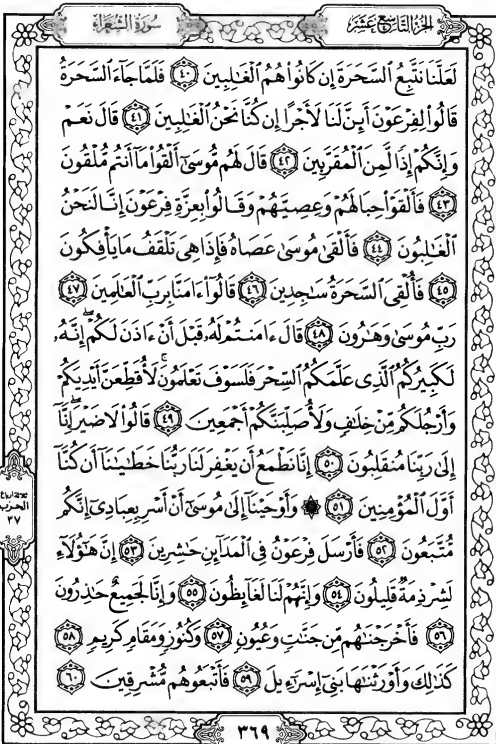 الجزء التاسع عشر
سورة الشعراء
لَعَلَّنَا نَتَّبِعُ السَّحَرَةَ إِن كَانُوا هُمُ الْغَالِبِينَ ﴿٤٠﴾ فَلَمَّا جَاءَ السَّحَرَةُ
قَالُوا لِفِرْعَوْنَ أَئِنَّ لَنَا لَأَجْرًا إِن كُنَّا نَحْنُ الْغَالِبِينَ ﴿٤١﴾ قَالَ نَعَمْ
وَإِنَّكُمْ إِذًا لَّمِنَ الْمُقَرَّبِينَ ﴿٤٢﴾ قَالَ لَهُم مُّوسَىٰ أَلْقُوا مَا أَنتُم مُّلْقُونَ
﴿٤٣﴾ فَأَلْقَوْا حِبَالَهُمْ وَعِصِيَّهُمْ وَقَالُوا بِعِزَّةِ فِرْعَوْنَ إِنَّا لَنَحْنُ
الْغَالِبُونَ ﴿٤٤﴾ فَأَلْقَىٰ مُوسَىٰ عَصَاهُ فَإِذَا هِيَ تَلْقَفُ مَا يَأْفِكُونَ
﴿٤٥﴾ فَأُلْقِيَ السَّحَرَةُ سَاجِدِينَ ﴿٤٦﴾ قَالُوا ءَامَنَّا بِرَبِّ الْعَالَمِينَ ﴿٤٧﴾
رَبِّ مُوسَىٰ وَهَارُونَ ﴿٤٨﴾ قَالَ ءَامَنتُمْ لَهُ قَبْلَ أَنْ ءَاذَنَ لَكُمْ ۖ إِنَّهُ
لَكَبِيرُكُمُ الَّذِي عَلَّمَكُمُ السِّحْرَ فَلَسَوْفَ تَعْلَمُونَ ۚ لَأُقَطِّعَنَّ أَيْدِيَكُمْ
وَأَرْجُلَكُم مِّنْ خِلَافٍ وَلَأُصَلِّبَنَّكُمْ أَجْمَعِينَ ﴿٤٩﴾ قَالُوا لَا ضَيْرَ ۖ إِنَّا
إِلَىٰ رَبِّنَا مُنقَلِبُونَ ﴿٥٠﴾ إِنَّا نَطْمَعُ أَن يَغْفِرَ لَنَا رَبُّنَا خَطَايَانَا أَن كُنَّا
أَوَّلَ الْمُؤْمِنِينَ ﴿٥١﴾ ۞ وَأَوْحَيْنَا إِلَىٰ مُوسَىٰ أَنْ أَسْرِ بِعِبَادِي إِنَّكُم
مُّتَّبَعُونَ ﴿٥٢﴾ فَأَرْسَلَ فِرْعَوْنُ فِي الْمَدَائِنِ حَاشِرِينَ ﴿٥٣﴾ إِنَّ هَٰؤُلَاءِ
لَشِرْذِمَةٌ قَلِيلُونَ ﴿٥٤﴾ وَإِنَّهُمْ لَنَا لَغَائِظُونَ ﴿٥٥﴾ وَإِنَّا لَجَمِيعٌ حَاذِرُونَ
﴿٥٦﴾ فَأَخْرَجْنَاهُم مِّن جَنَّاتٍ وَعُيُونٍ ﴿٥٧﴾ وَكُنُوزٍ وَمَقَامٍ كَرِيمٍ ﴿٥٨﴾
كَذَٰلِكَ وَأَوْرَثْنَاهَا بَنِي إِسْرَائِيلَ ﴿٥٩﴾ فَأَتْبَعُوهُم مُّشْرِقِينَ ﴿٦٠﴾
ثلاثة أرباع
الحزب
٣٧
٣٦٩